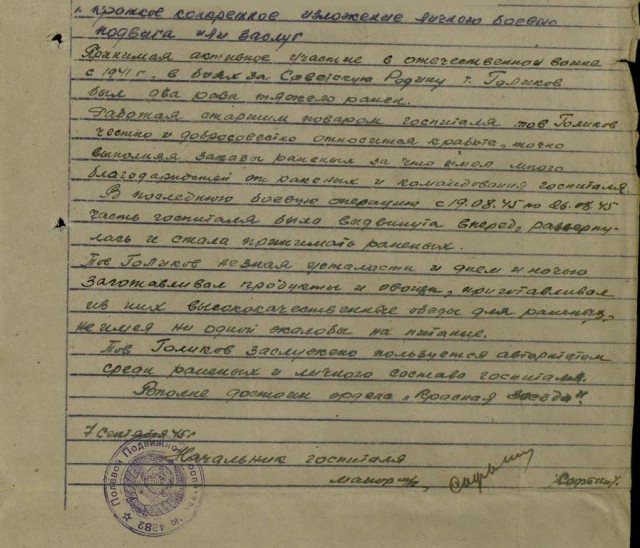 1. Краткое конкретное изложение личного боевого
подвига или заслуг
Принимая активное участие в отечественной войне
с 1941 г. в боях за Советскую Родину т. Голиков
был два раза тяжело ранен.
Работая старшим поваром госпиталя тов Голиков
честно и добросовестно относится к работе, точно
выполняя заказы раненых за что имел много
благодарностей от раненых и командования госпиталя.
В последнюю боевую операцию с 19.08.45 по 26.08.45
часть госпиталя была выдвинута вперед, разверну-
лась и стала принимать раненых.
Тов Голиков не зная усталости и днем и ночью
заготавливал продукты и овощи, приготавливал
из них высококачественные обеды для раненых,
не имея ни одной жалобы на питание.
Тов Голиков заслужено пользуется авторитетом
среди раненых и личного состава госпиталя.
Вполне достоин ордена "Красная звезда".
7 сентября 45 г
Начальник госпиталя
майор
Полевой Подвижной Госпиталь № 4382